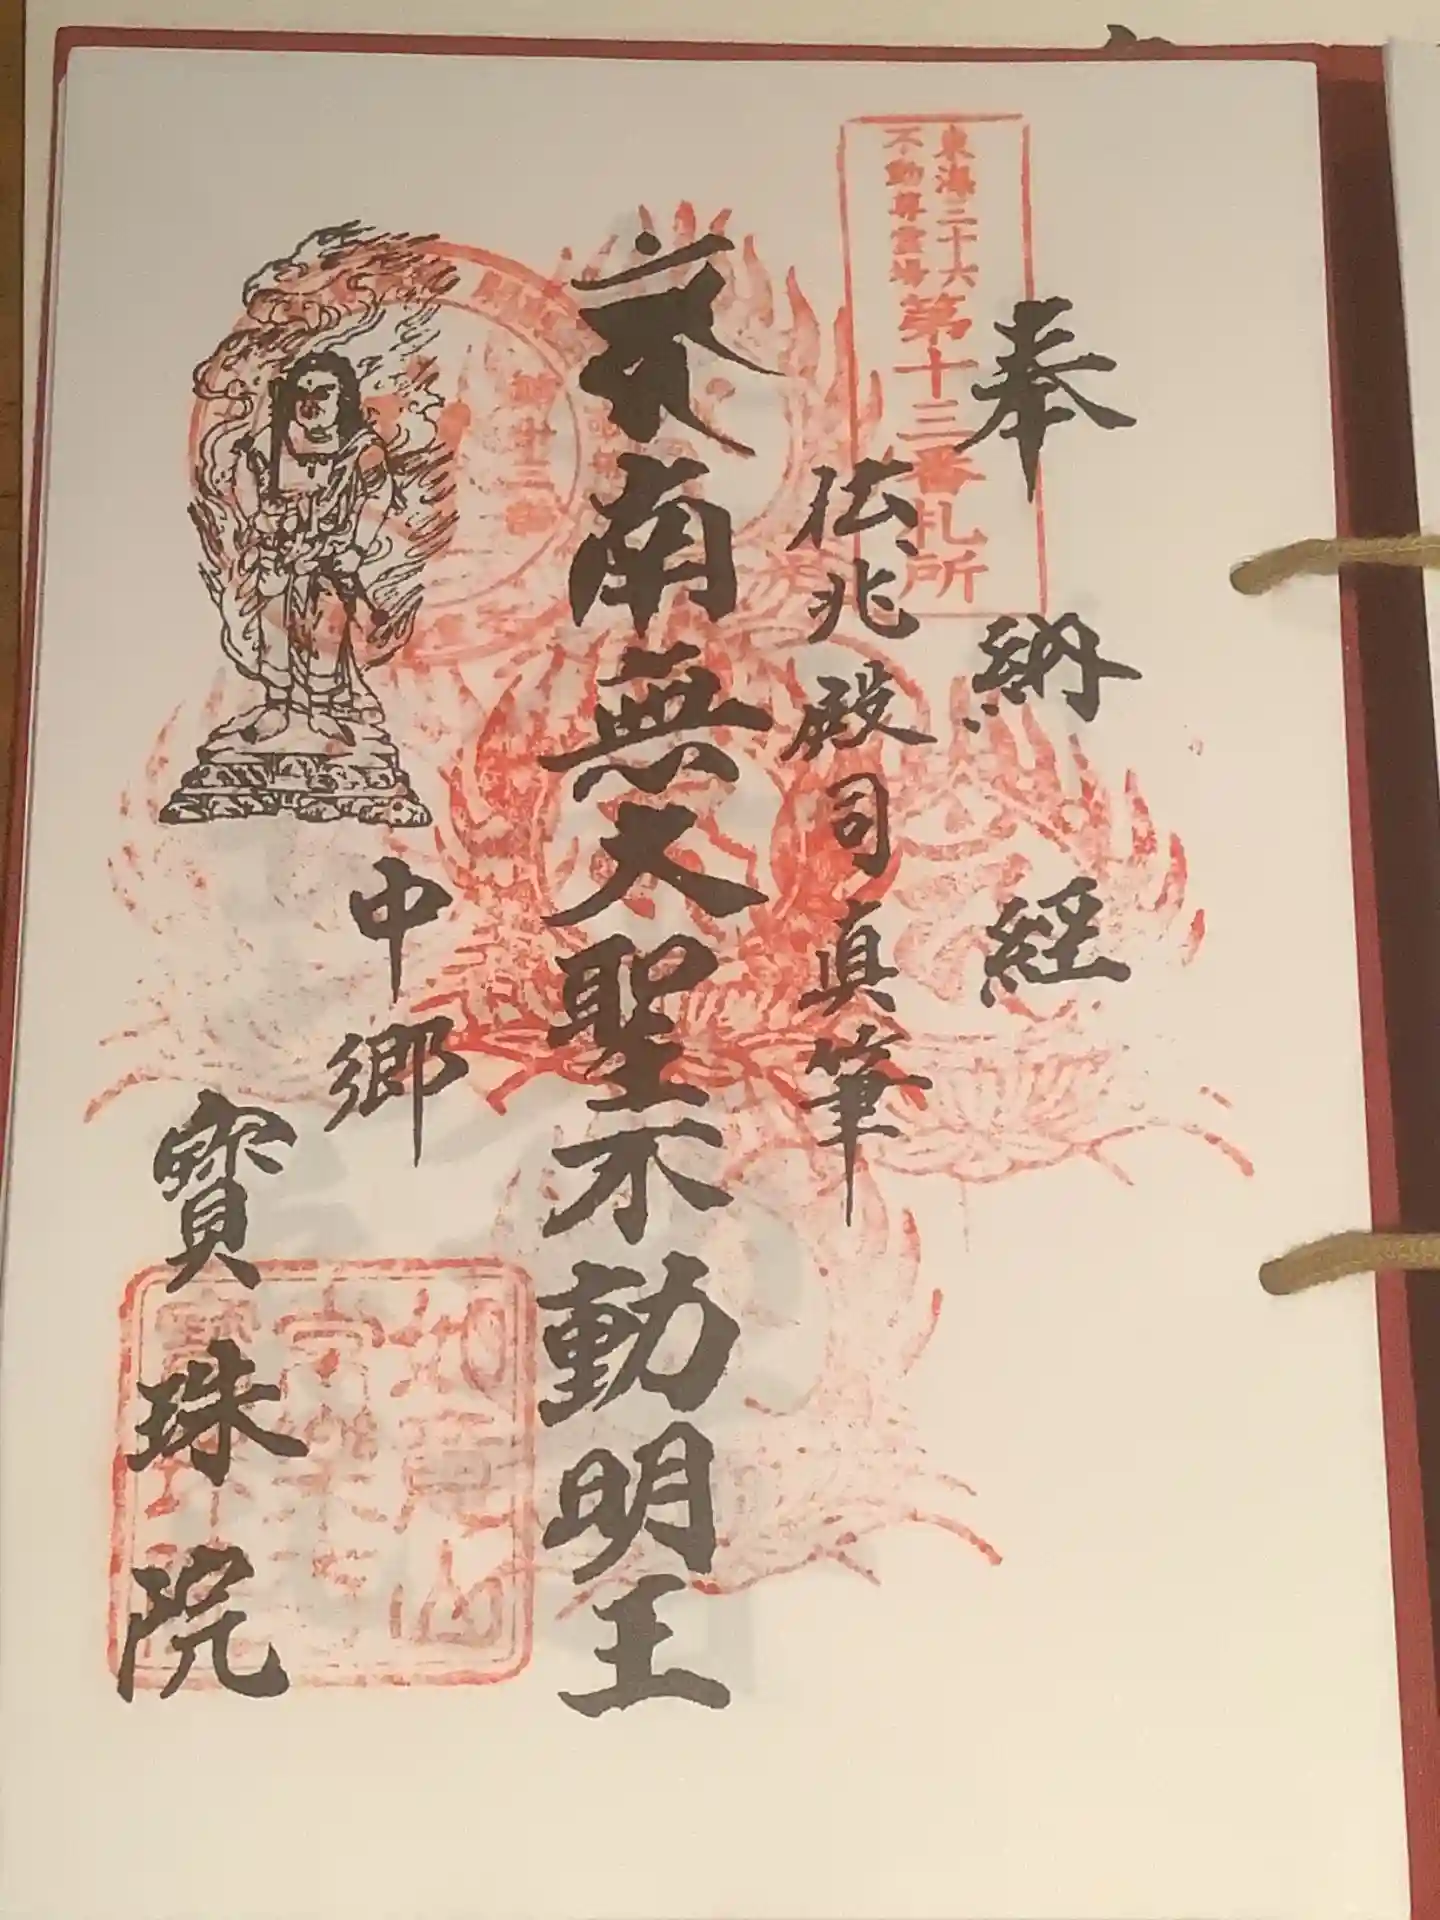 奉納経
東海三十六
不動尊霊場
第十三番札所
仏兆殿司真筆
南無大聖不動明王
第十三番
中郷
寳珠院
如意山